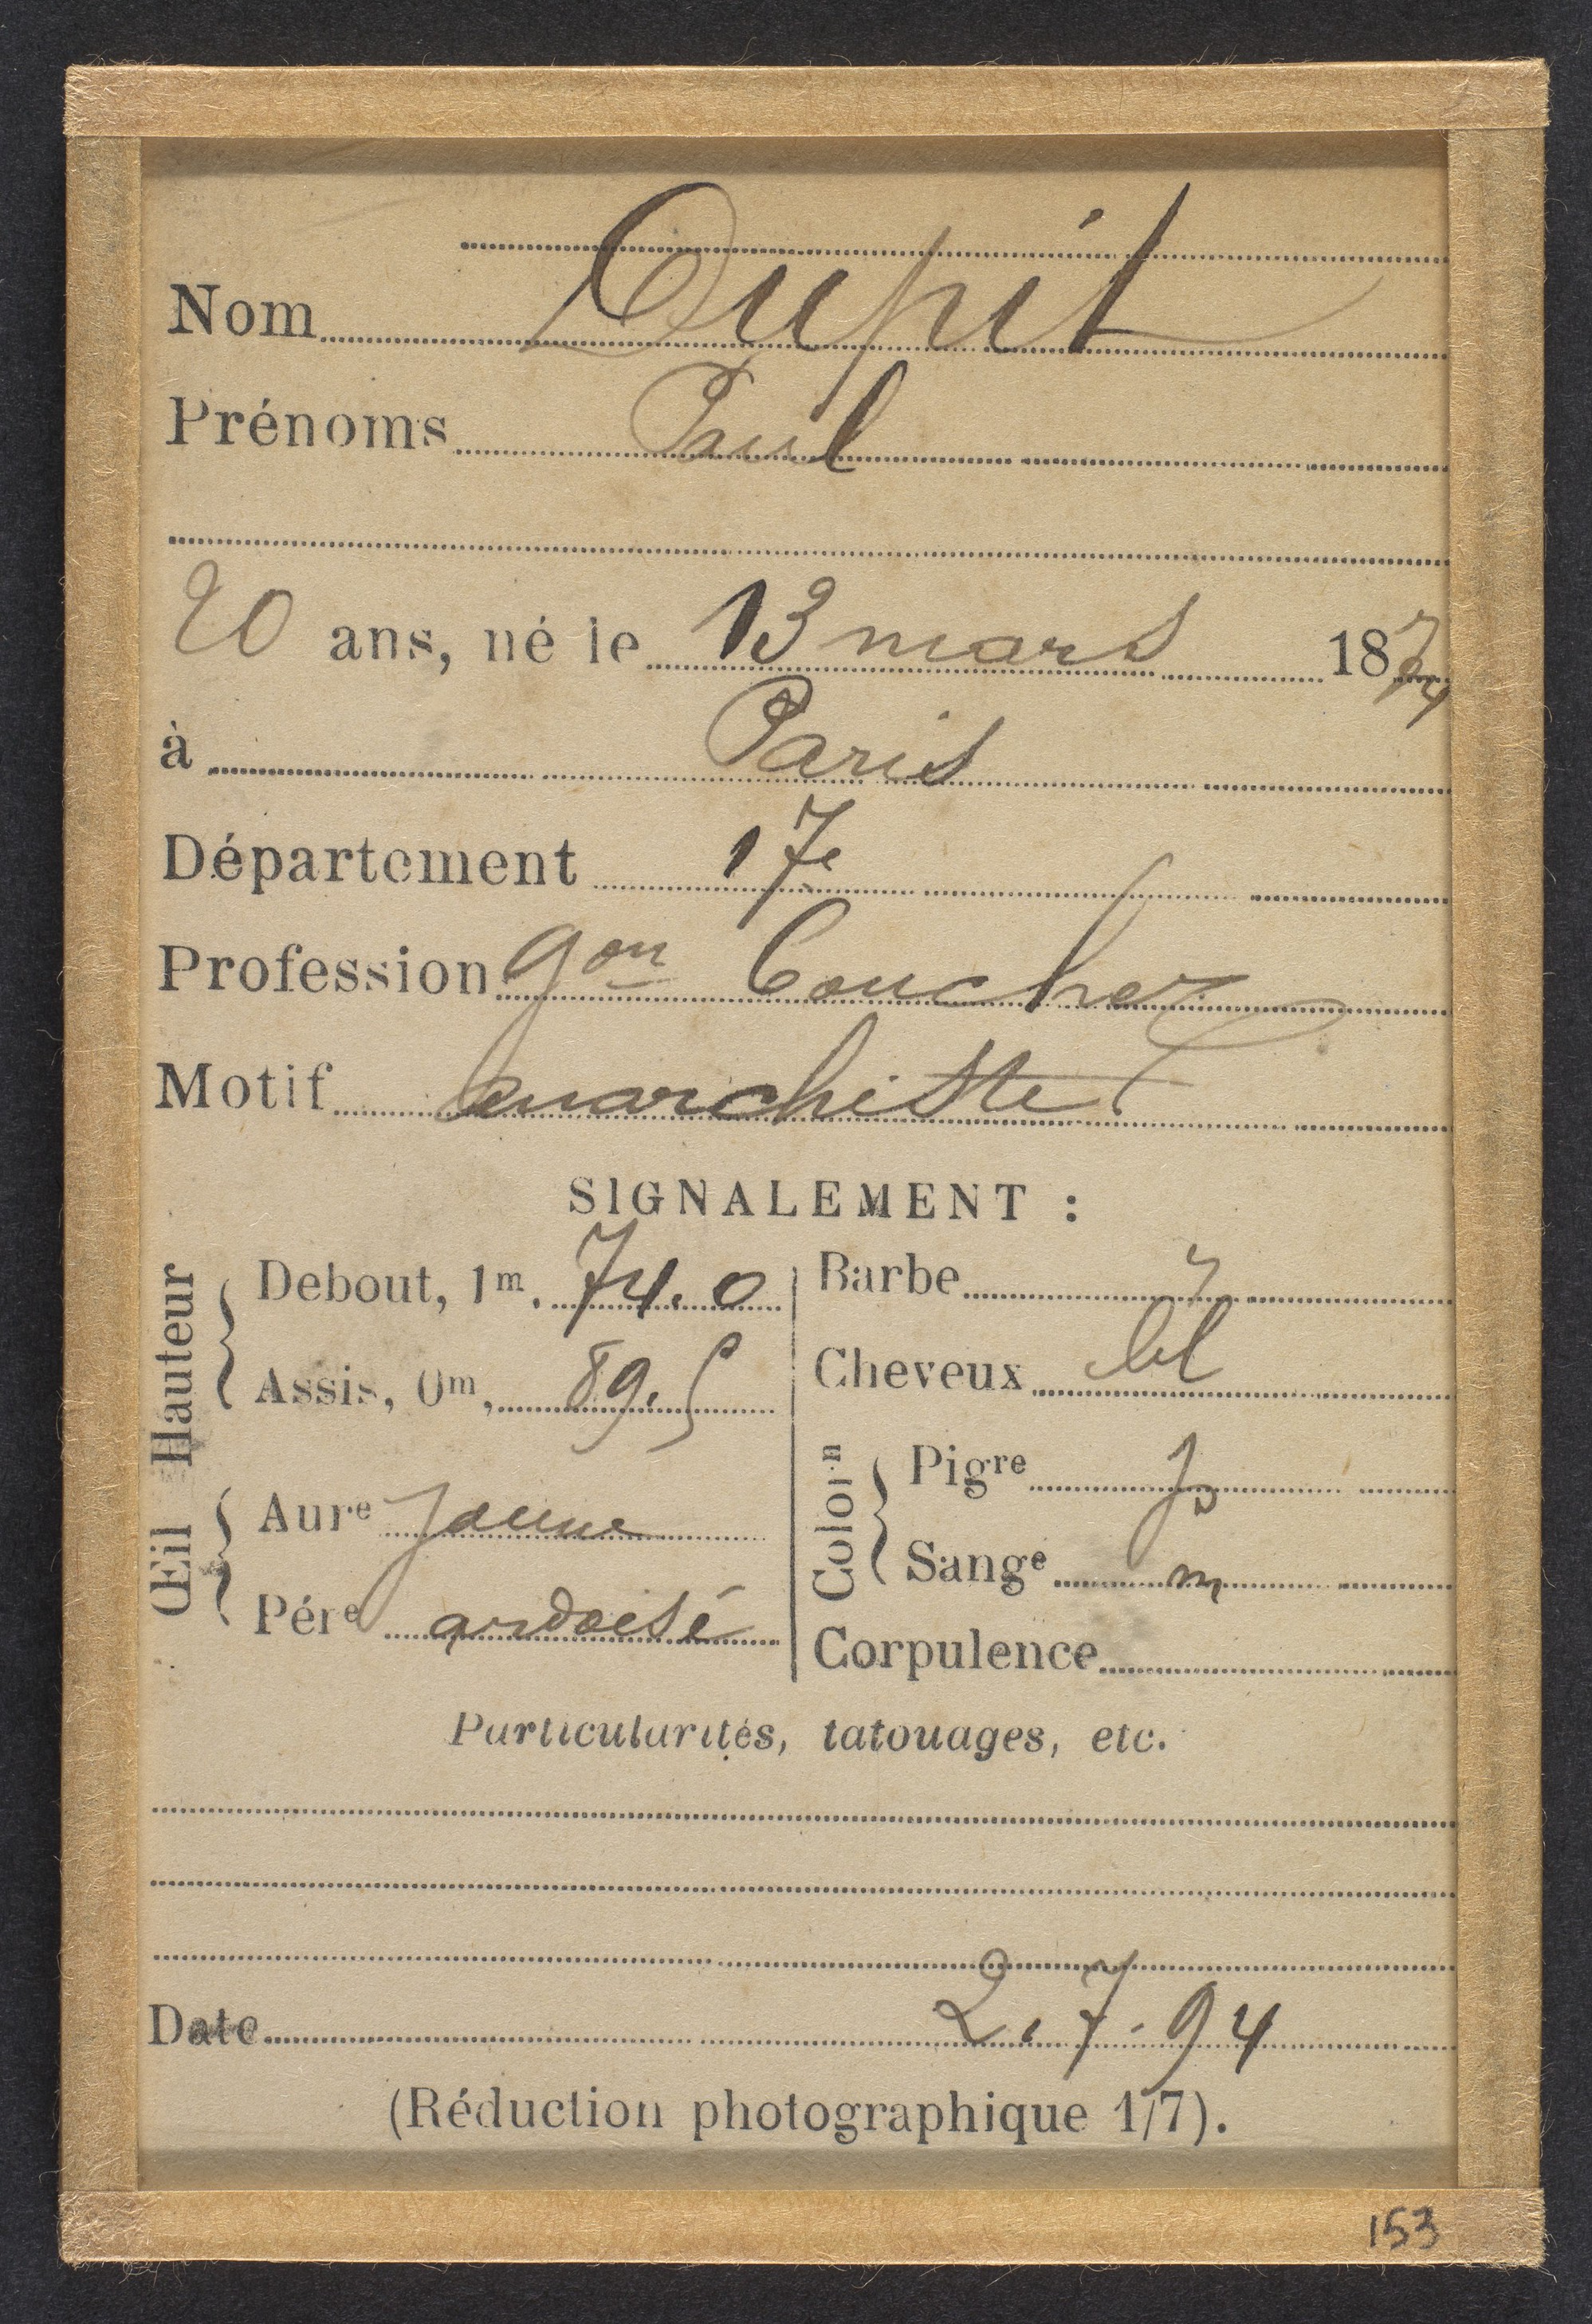 Nom Dupit
Prénoms Paul
20 ans, né le 13 mars 1874
à Paris
Département 17e
Profession gon boucher
Motif anarchiste
SIGNALEMENT :
Hauteur
Debout, 1m, 74.0
Assis, 0m, 89.5
Œil
Aure Jaune
Pére ardoisé
Barbe
Cheveux bl
Colorn
Pigre
Sange m
Corpulence
Particularités, tatouages, etc.
Date 2.7.94
(Réduction photographique 1/7).
153